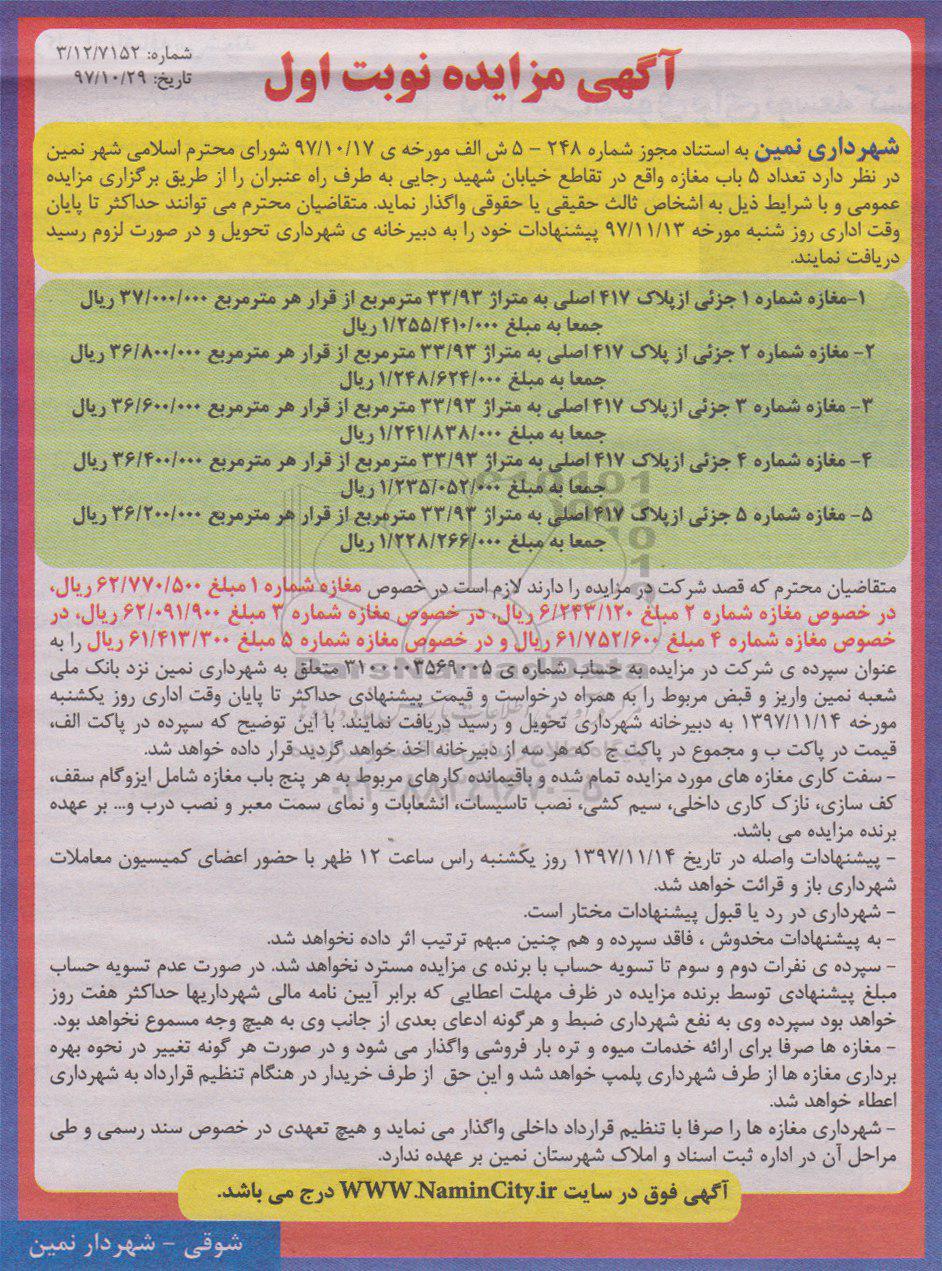 شماره: ۳/۱۲/۷۱۵۲
تاریخ: ۹۷/۱۰/۲۹
آگهی مزایده نوبت اول
شهرداری نمین به استناد مجوز شماره ۲۴۸ – ۵ ش الف مورخه ی ۹۷/۱۰/۱۷ شورای محترم اسلامی شهر نمین
در نظر دارد تعداد ۵ باب مغازه واقع در تقاطع خیابان شهید رجایی به طرف راه عنبران را از طریق برگزاری مزایده
عمومی و با شرایط ذیل به اشخاص ثالث حقیقی یا حقوقی واگذار نماید. متقاضیان محترم می توانند حداکثر تا پایان
وقت اداری روز شنبه مورخه ۹۷/۱۱/۱۳ پیشنهادات خود را به دبیرخانه ی شهرداری تحویل و در صورت لزوم رسید
دریافت نمایند.
۱-مغازه شماره ۱ جزئی ازپلاک ۴۱۷ اصلی به متراژ ۳۳/۹۳ مترمربع از قرار هر مترمربع ۳۷/۰۰۰/۰۰۰ ریال
جمعا به مبلغ ۱/۲۵۵/۴۱۰/۰۰۰ ریال
۲- مغازه شماره ۲ جزئی از پلاک ۴۱۷ اصلی به متراژ ۳۳/۹۳ مترمربع از قرار هر مترمربع ۳۶/۸۰۰/۰۰۰ ریال
جمعا به مبلغ ۱/۲۴۸/۶۲۴/۰۰۰ ریال
۳- مغازه شماره ۳ جزئی ازپلاک ۴۱۷ اصلی به متراژ ۳۳/۹۳ مترمربع از قرار هر مترمربع ۳۶/۶۰۰/۰۰۰ ریال
جمعا به مبلغ ۱/۲۴۱/۸۳۸/۰۰۰ ریال
۴- مغازه شماره ۴ جزئی ازپلاک ۴۱۷ اصلی به متراژ ۳۳/۹۳ مترمربع از قرار هر مترمربع ۳۶/۴۰۰/۰۰۰ ریال
جمعا به مبلغ ۱/۲۳۵/۰۵۲/۰۰۰ ریال
۵- مغازه شماره ۵ جزئی ازپلاک ۴۱۷ اصلی به متراژ ۳۳/۹۳ مترمربع از قرار هر مترمربع ۳۶/۲۰۰/۰۰۰ ریال
جمعا به مبلغ ۱/۲۲۸/۲۶۶/۰۰۰ ریال
متقاضیان محترم که قصد شرکت در مزایده را دارند لازم است در خصوص مغازه شماره ۱ مبلغ ۶۲/۷۷۰/۵۰۰ ریال،
در خصوص مغازه شماره ۲ مبلغ ۶/۲۴۳/۱۲۰ ریال، در خصوص مغازه شماره ۳ مبلغ ۶۲/۰۹۱/۹۰۰ ریال، در
خصوص مغازه شماره ۴ مبلغ ۶۱/۷۵۲/۶۰۰ ریال و در خصوص مغازه شماره ۵ مبلغ ۶۱/۴۱۳/۳۰۰ ریال را به
عنوان سپرده ی شرکت در مزایده به حساب شماره ی ۳۱۰۰۰۰۳۵۶۹۰۰۵ متعلق به شهرداری نمین نزد بانک ملی
شعبه نمین واریز و قبض مربوط را به همراه درخواست و قیمت پیشنهادی حداکثر تا پایان وقت اداری روز یکشنبه
مورخه ۱۳۹۷/۱۱/۱۴ به دبیرخانه شهرداری تحویل و رسید دریافت نمایند. با این توضیح که سپرده در پاکت الف،
قیمت در پاکت ب و مجموع در پاکت ج ، که هر سه از دبیرخانه اخذ خواهد گردید قرار داده خواهد شد.
- سفت کاری مغازه های مورد مزایده تمام شده و باقیمانده کارهای مربوط به هر پنج باب مغازه شامل ایزوگام سقف،
کف سازی، نازک کاری داخلی، سیم کشی، نصب تاسیسات، انشعابات و نمای سمت معبر و نصب درب و... بر عهده
برنده مزایده می باشد.
- پیشنهادات واصله در تاریخ ۱۳۹۷/۱۱/۱۴ روز یکشنبه راس ساعت ۱۲ ظهر با حضور اعضای کمیسیون معاملات
شهرداری باز و قرائت خواهد شد.
- شهرداری در رد یا قبول پیشنهادات مختار است.
- به پیشنهادات مخدوش ، فاقد سپرده و هم چنین مبهم ترتیب اثر داده نخواهد شد.
- سپرده ی نفرات دوم و سوم تا تسویه حساب با برنده ی مزایده مسترد نخواهد شد. در صورت عدم تسویه حساب
مبلغ پیشنهادی توسط برنده مزایده در ظرف مهلت اعطایی که برابر آیین نامه مالی شهرداریها حداکثر هفت روز
خواهد بود سپرده وی به نفع شهرداری ضبط و هرگونه ادعای بعدی از جانب وی به هیچ وجه مسموع نخواهد بود.
- مغازه ها صرفا برای ارائه خدمات میوه و تره بار فروشی واگذار می شود و در صورت هر گونه تغییر در نحوه بهره
برداری مغازه ها از طرف شهرداری پلمپ خواهد شد و این حق از طرف خریدار در هنگام تنظیم قرارداد به شهرداری
اعطاء خواهد شد.
- شهرداری مغازه ها را صرفا با تنظیم قرارداد داخلی واگذار می نماید و هیچ تعهدی در خصوص سند رسمی و طی
مراحل آن در اداره ثبت اسناد و املاک شهرستان نمین بر عهده ندارد.
آگهی فوق در سایت WWW.NaminCity.ir درج می باشد.
شوقی – شهردار نمین